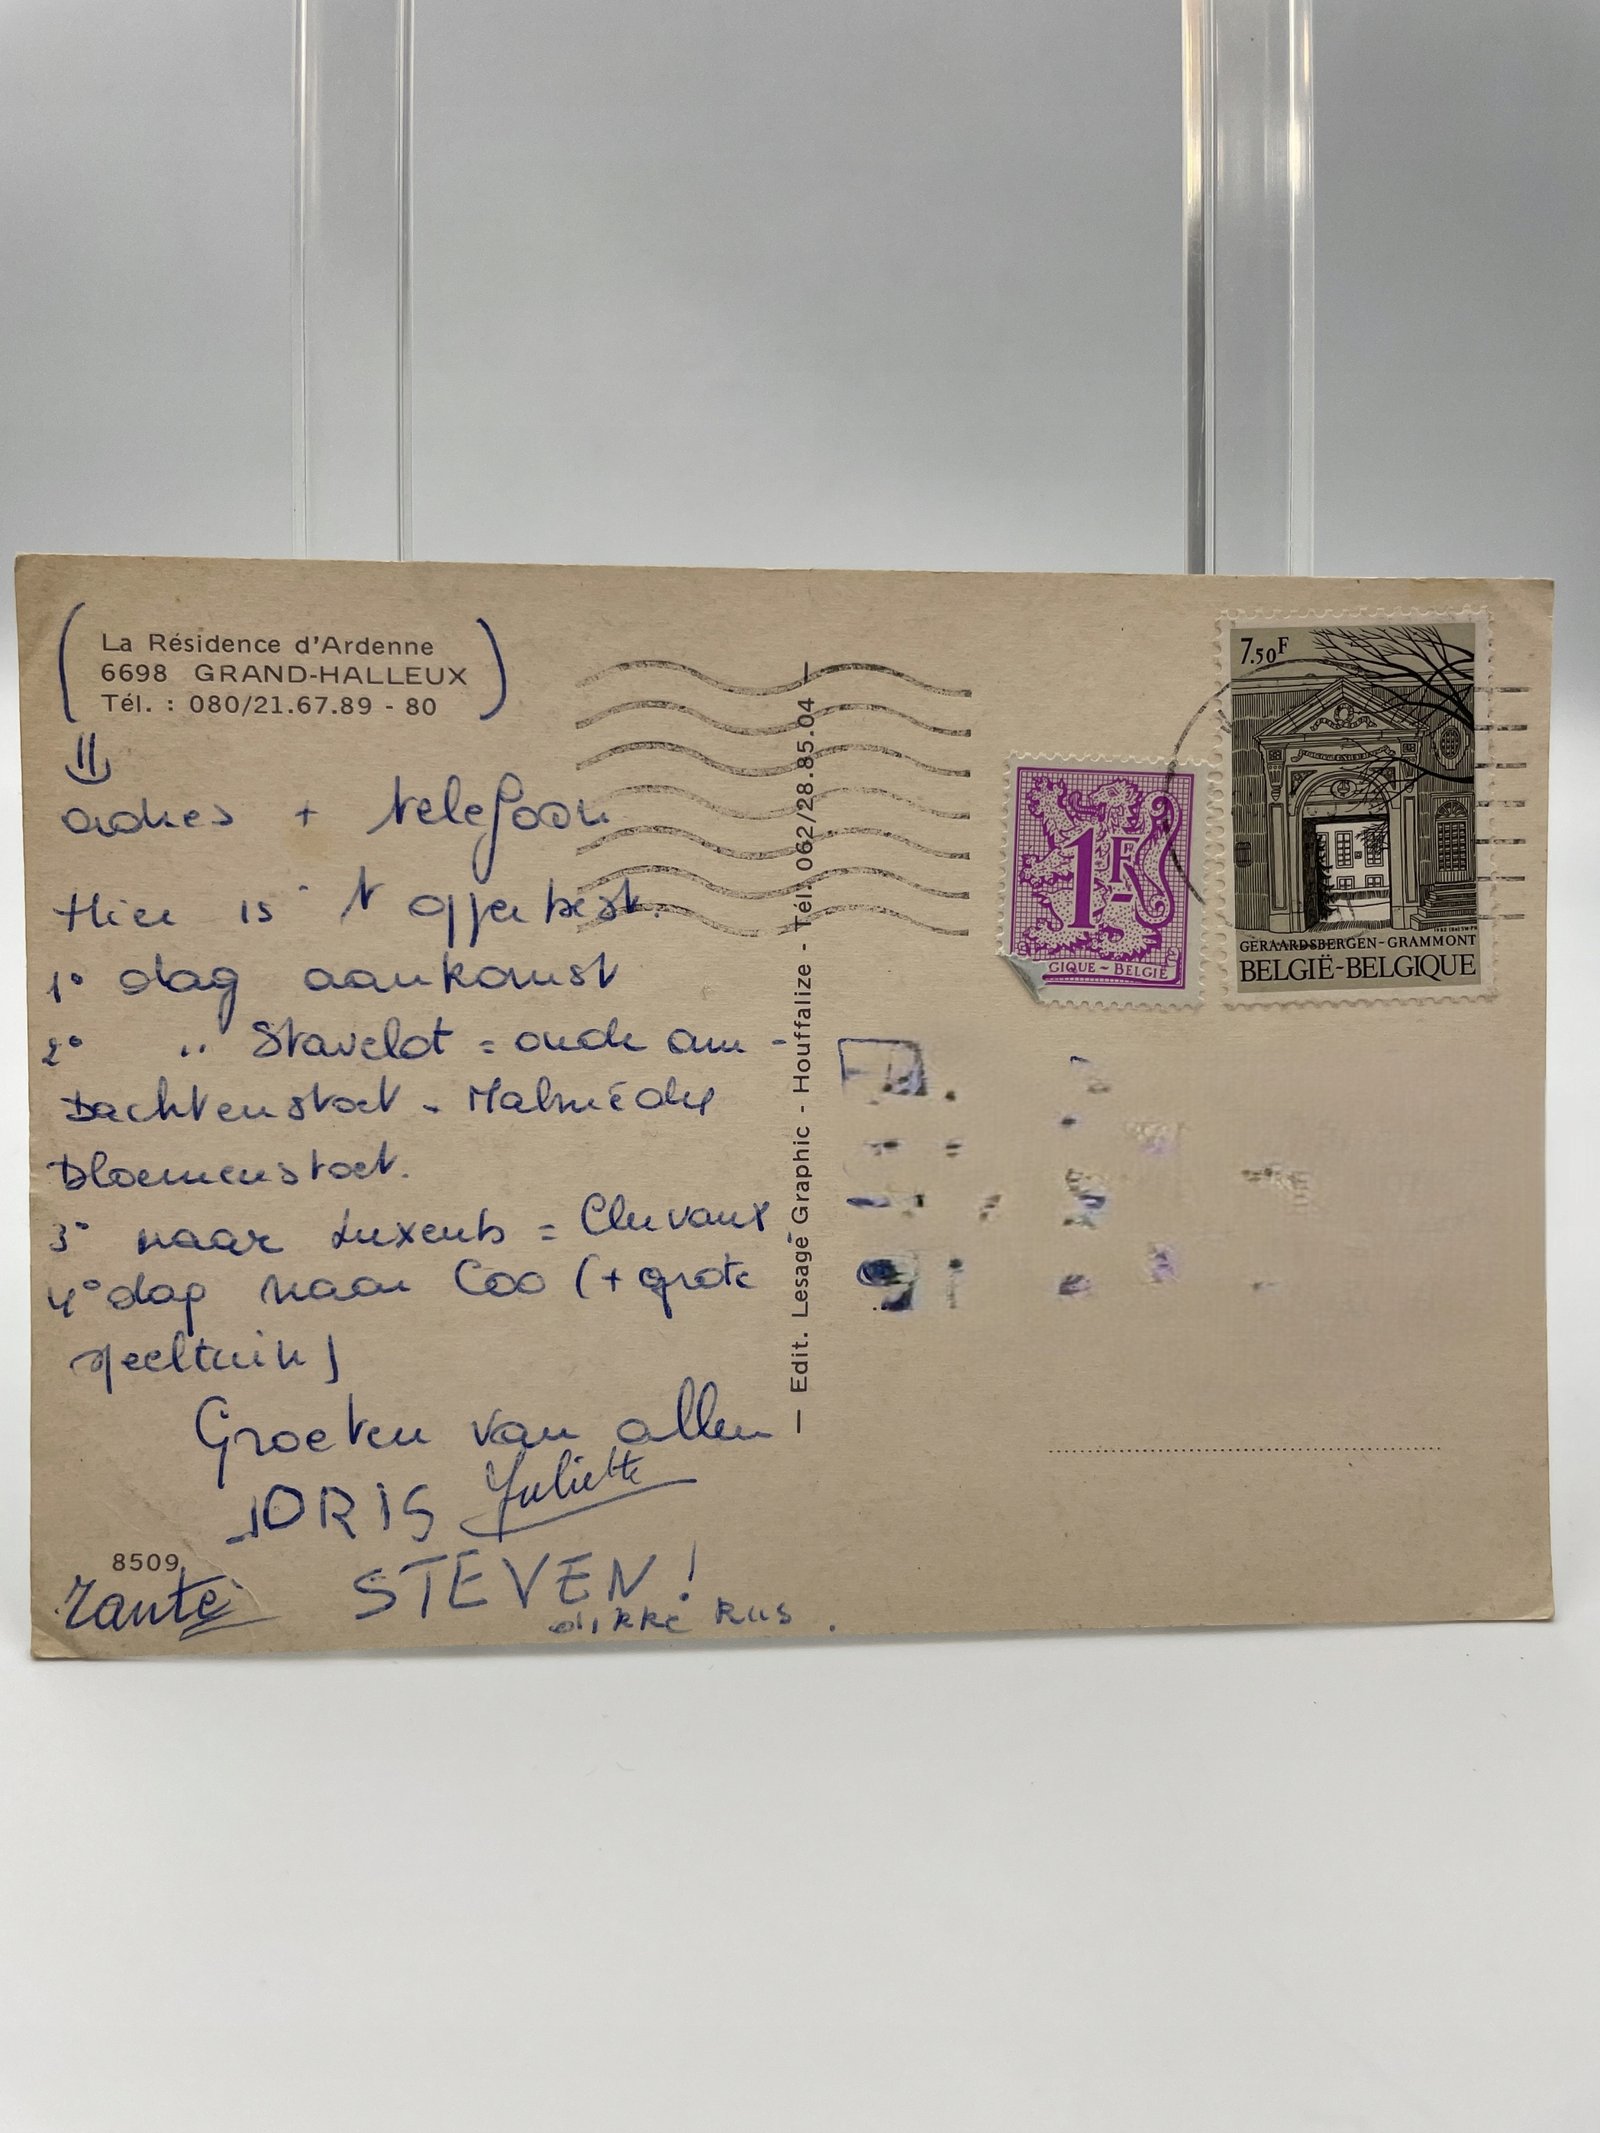 La Résidence d'Ardenne
6698 GRAND-HALLEUX
Tél. : 080/21.67.89 - 80
adres + telefoon
Hier is 't opperbest.
1° dag aankomst
2° " Stavelot = oude am-
bachtenstoet - Malmédy
bloemenstoet.
3° naar Luxemb = Clervaux
4° dag naar Coo (+ grote
speeltuin)
Groeten van allen
JORIS Juliette
8509
Tante STEVEN!
dikke kus.
— Edit. Lesage Graphic - Houffalize - Tél. 062/28.85.04 —
1F
GIQUE - BELGIË
7.50F
GERAARDSBERGEN-GRAMMONT
BELGIË-BELGIQUE